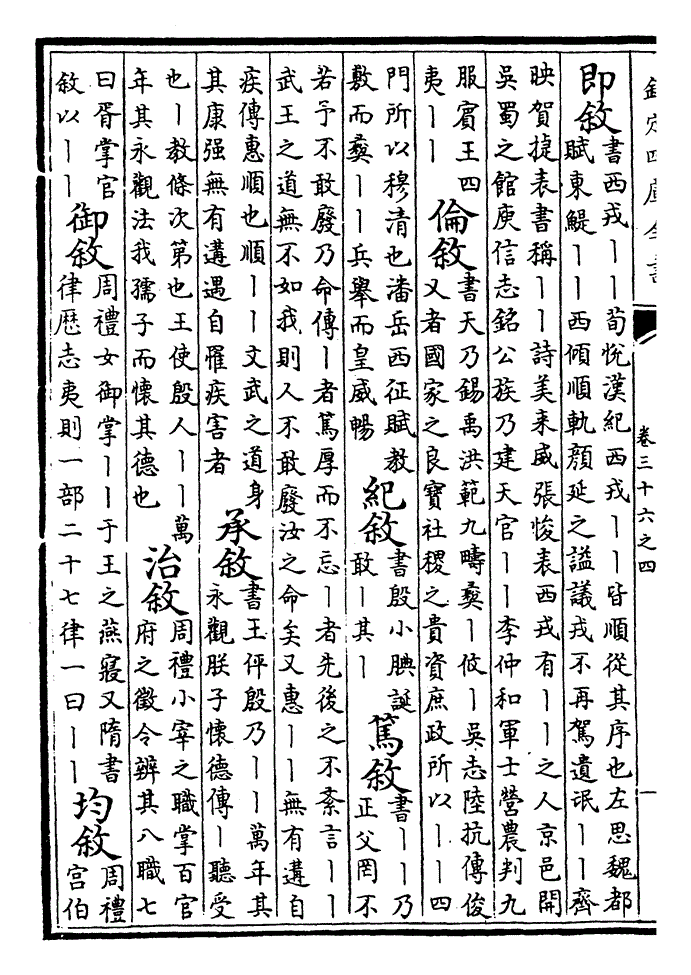 欽定四庫全書
卷三十六之四
一
即敘
書西戎丨丨荀悅漢紀西戎丨丨皆順從其序也左思魏都
賦東鯷丨丨西傾順軌顏延之謚議戎不再駕遺氓丨丨齊
映賀捷表書稱丨丨詩美来威張悛表西戎有丨丨之人京邑開
吳蜀之館庾信志銘公族乃建天官丨丨李仲和軍士營農判九
服賓王四
夷丨丨
倫敘
書天乃錫禹洪範九疇彝丨攸丨吳志陸抗傳俊
乂者國家之良寶社稷之貴資庶政所以丨丨四
門所以穆清也潘岳西征賦教
敷而彝丨丨兵舉而皇威暢
紀敘
書殷小腆誕
敢丨其丨
篤敘
書丨丨乃
正父罔不
若予不敢廢乃命傳丨者篤厚而不忘丨者先後之不紊言丨丨
武王之道無不如我則人不敢廢汝之命矣又惠丨丨無有遘自
疾傳惠順也順丨丨文武之道身
其康强無有遘遇自罹疾害者
承敘
書王伻殷乃丨丨萬年其
永觀朕子懷德傳丨聽受
也丨教條次第也王使殷人丨丨萬
年其永觀法我孺子而懷其德也
治敘
周禮小宰之職掌百官
府之徵令辨其八職七
曰胥掌官
敘以丨丨
御敘
周禮女御掌丨丨于王之燕寢又隋書
律歴志夷則一部二十七律一曰丨丨
均敘
周禮
宮伯